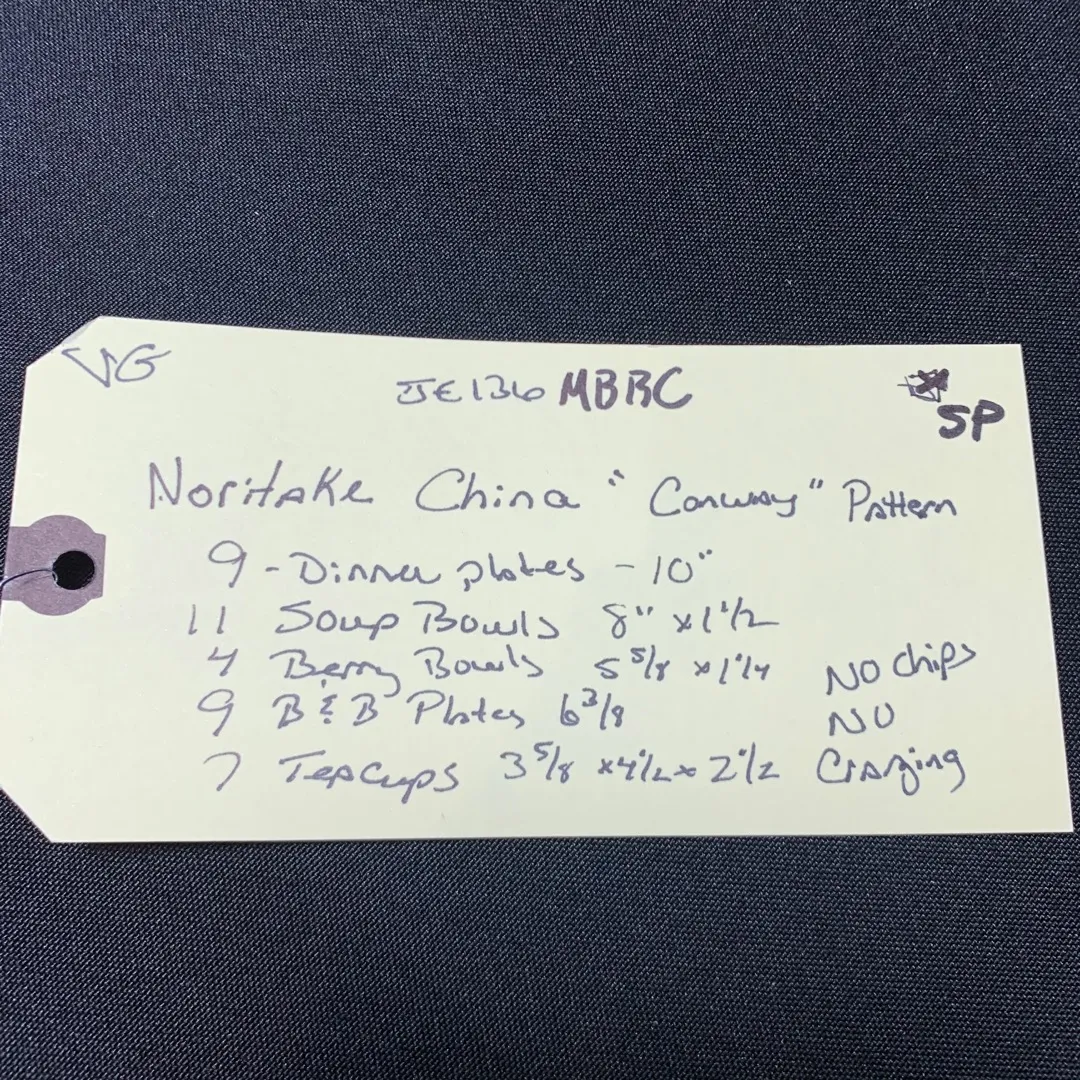 VG
JE136 MBRC
SP
Noritake China "Conway" Pattern
9 - Dinner plates - 10"
11 Soup Bowls 8" x 1 1/2
4 Berry Bowls 5 5/8 x 1 1/4 No chips
9 B & B Plates 6 3/8 NO
7 TeaCups 3 5/8 x 4 1/2 x 2 1/2 Crazing